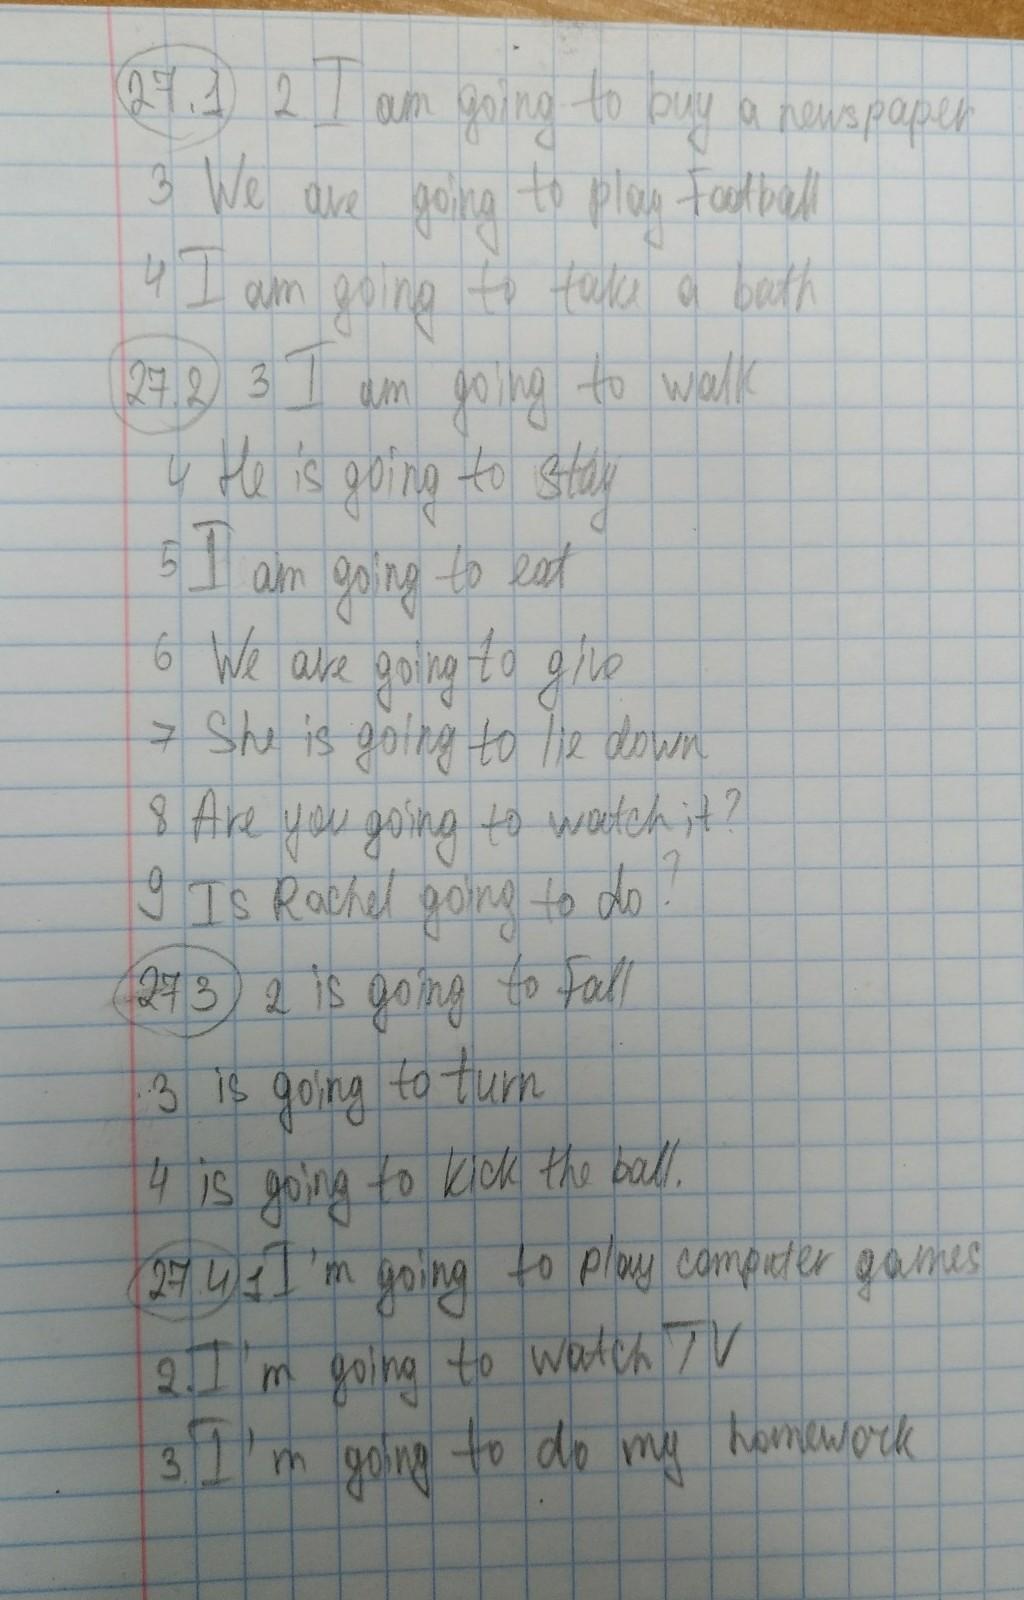 27.1 2 I am going to buy a newspaper
3 We are going to play Football
4 I am going to take a bath
27.2 3 I am going to walk
4 He is going to stay
5 I am going to eat
6 We are going to give
7 She is going to lie down
8 Are you going to watch it?
9 Is Rachel going to do?
27 3 2 is going to Fall
3 is going to turn
4 is going to kick the ball.
27.4 1 I'm going to play computer games
2. I'm going to watch TV
3. I'm going to do my homework